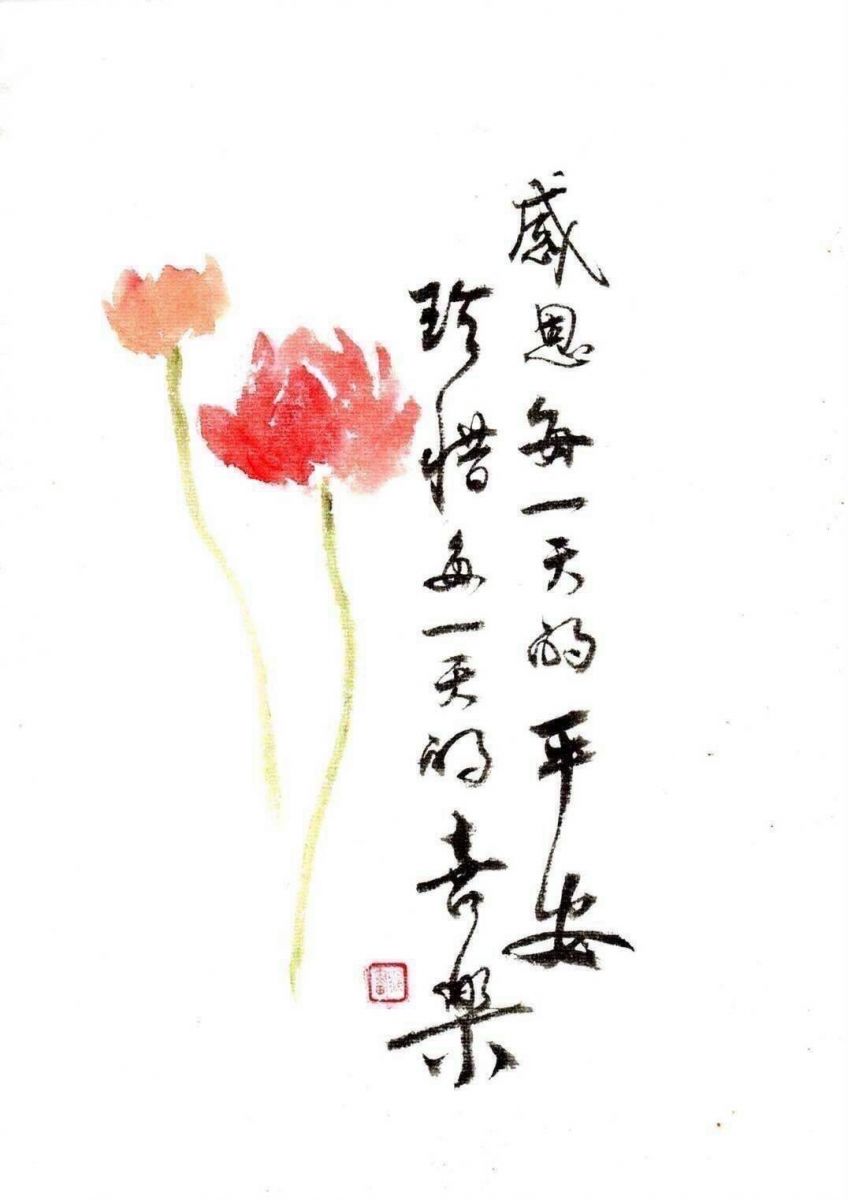 感恩每一天的平安
珍惜每一天的喜樂